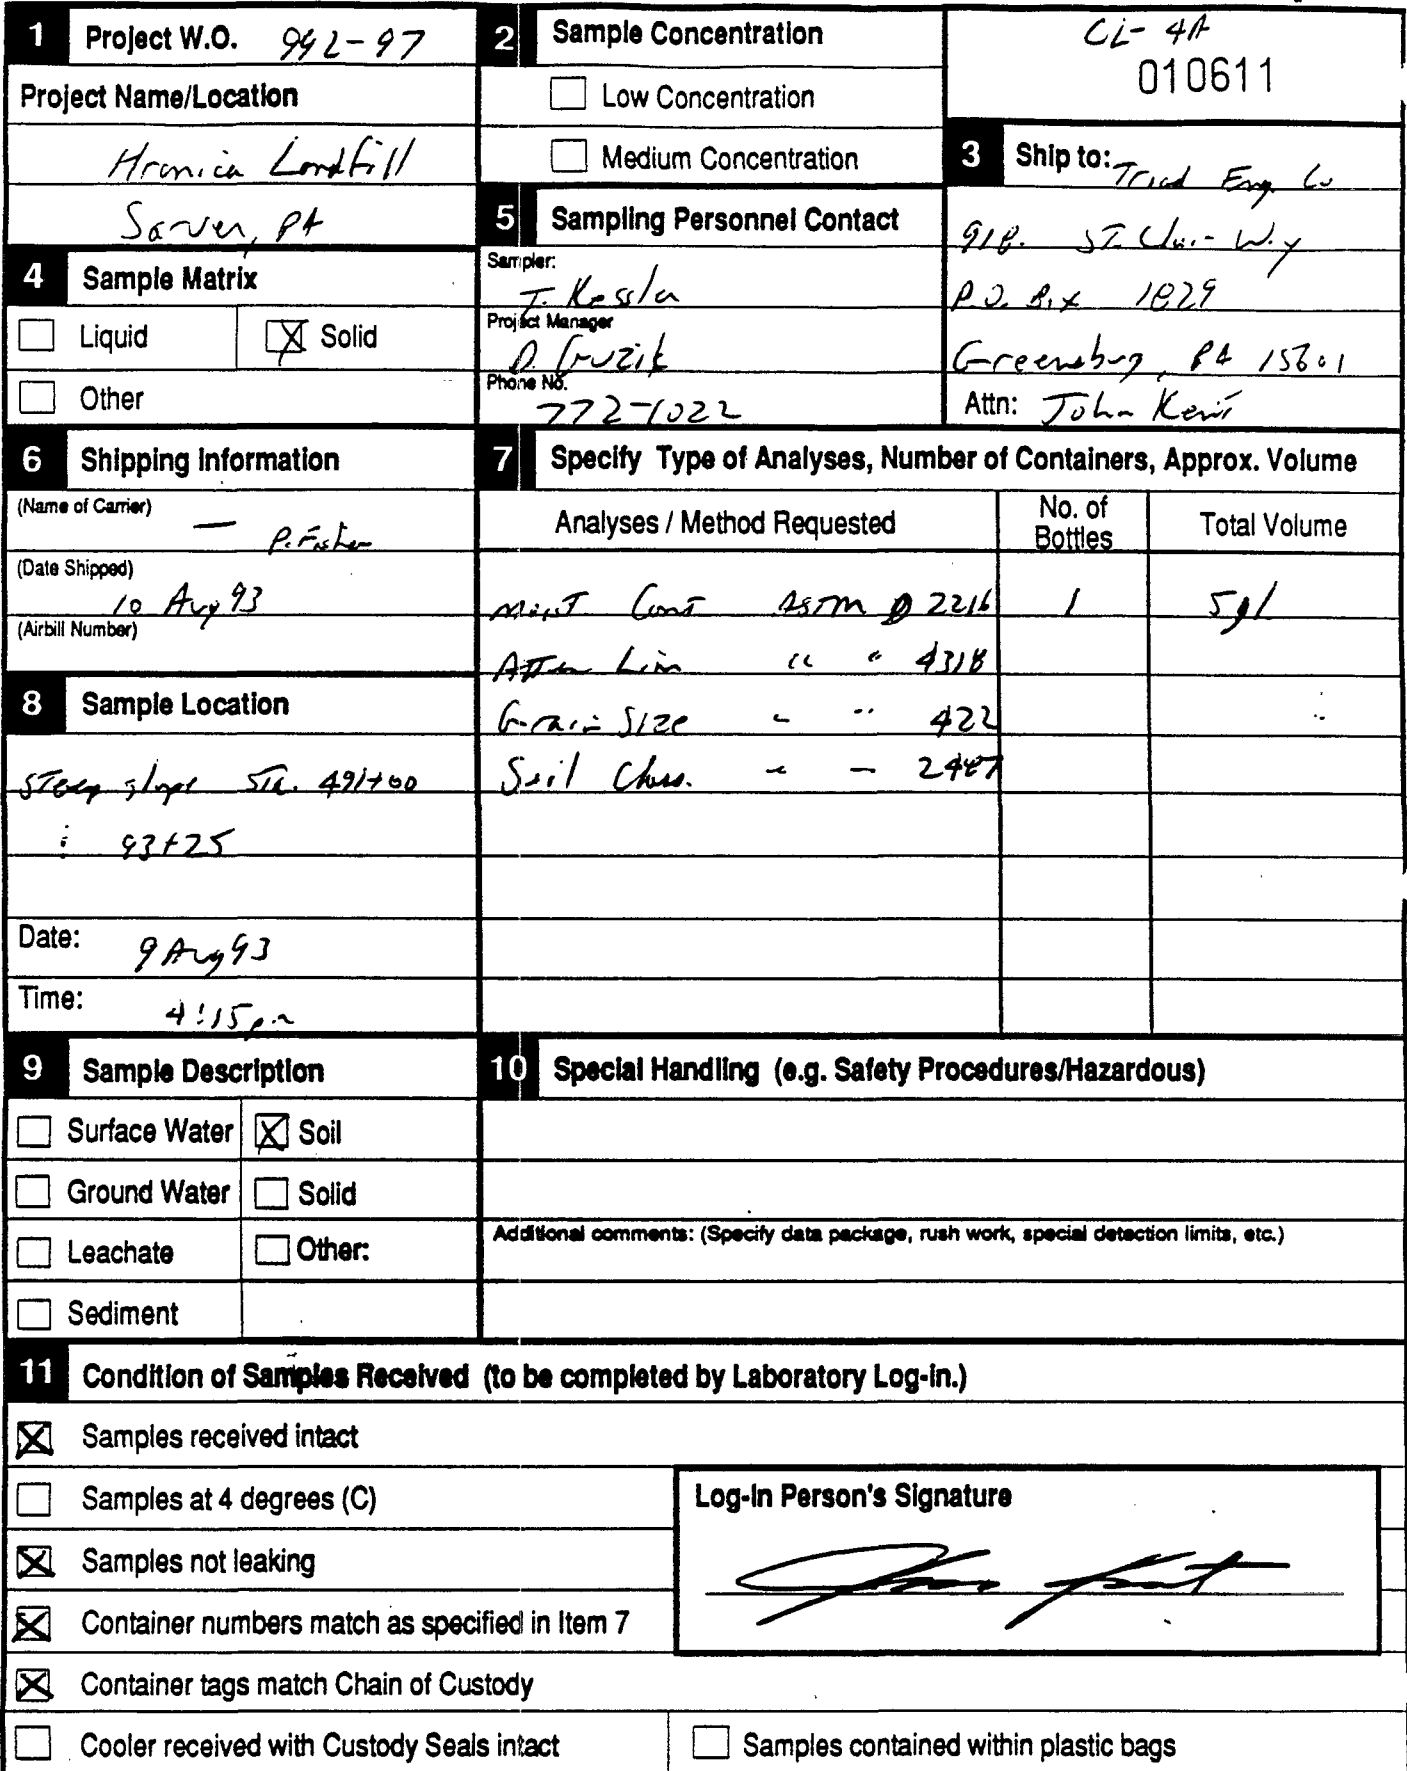 1 Project W.O. 992-97
Project Name/Location
Hranica Landfill
Sarver, PA
2 Sample Concentration
Low Concentration
Medium Concentration
CL-4A
010611
3 Ship to: Triad Eng. Co
918. ST. Clair Way
P.O. Box 1829
Greensburg, PA 15601
Attn: John Kent
4 Sample Matrix
Liquid
Solid
Other
5 Sampling Personnel Contact
Sampler:
T. Kessler
Project Manager
D. Guzik
Phone No.
772-1022
6 Shipping Information
(Name of Carrier)
— P. Fisher
(Date Shipped)
10 Aug 93
(Airbill Number)
7 Specify Type of Analyses, Number of Containers, Approx. Volume
Analyses / Method Requested
No. of Bottles
Total Volume
Moist. Cont ASTM D 2216 1 5 gl
Atter Lim " " 4318
Grain Size " " 422
Soil Class. " " 2487
8 Sample Location
Steep slope Sta. 491+00
93+25
Date: 9 Aug 93
Time: 4:15 pm
9 Sample Description
Surface Water
Soil
Ground Water
Solid
Leachate
Other:
Sediment
10 Special Handling (e.g. Safety Procedures/Hazardous)
Additional comments: (Specify data package, rush work, special detection limits, etc.)
11 Condition of Samples Received (to be completed by Laboratory Log-in.)
Samples received intact
Samples at 4 degrees (C)
Samples not leaking
Container numbers match as specified in Item 7
Container tags match Chain of Custody
Cooler received with Custody Seals intact
Samples contained within plastic bags
Log-In Person's Signature
John Kent